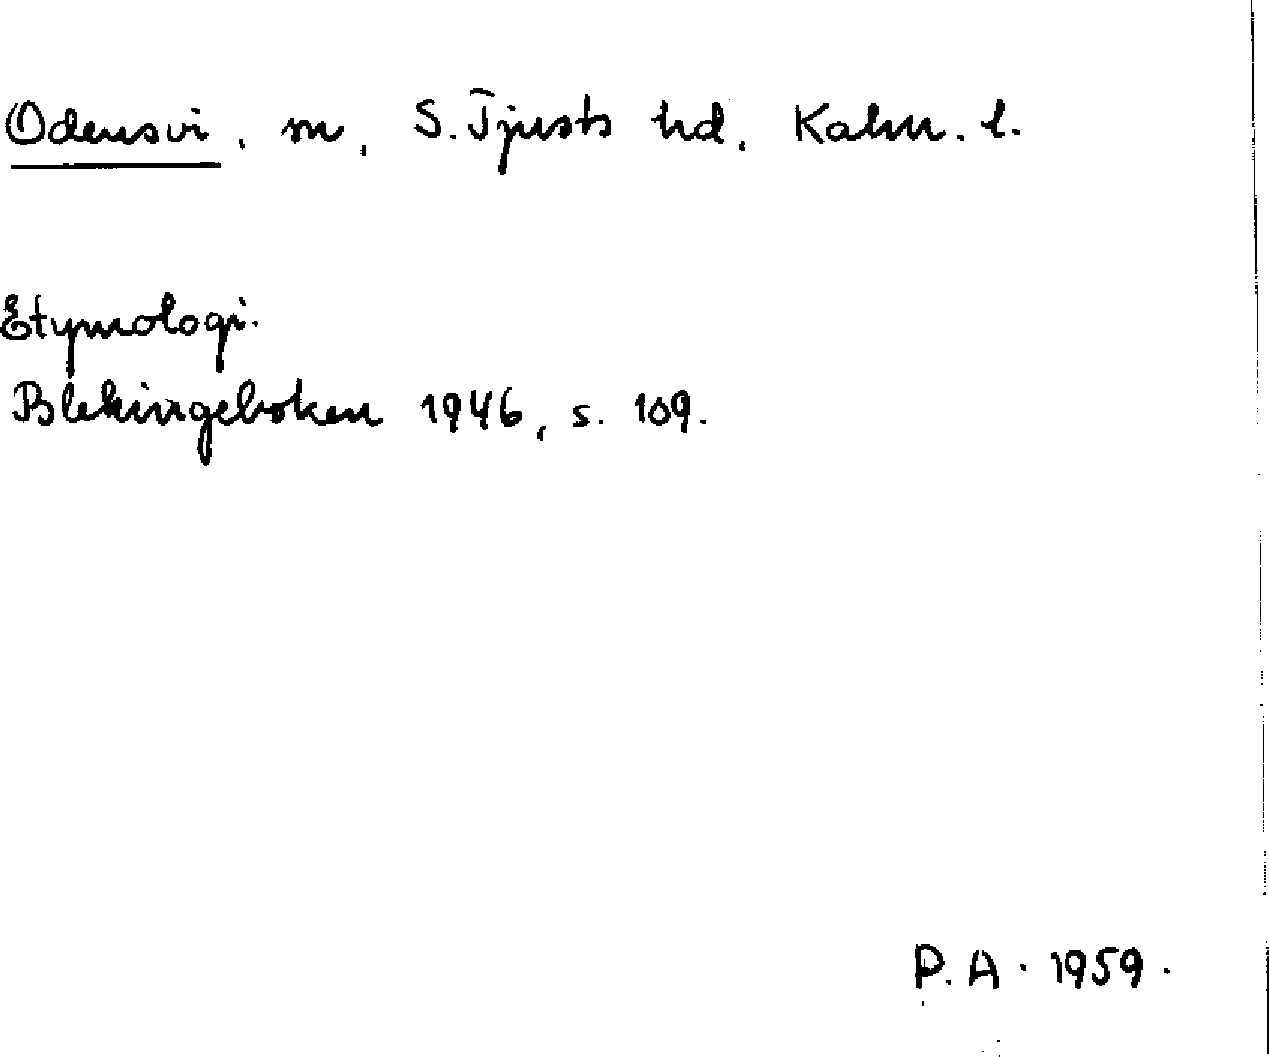 Odensvi, m, S. Tjusts hd, Kalm. l.
Etymologi.
Blekingeboken 1946, s. 109.
P.A. 1959.